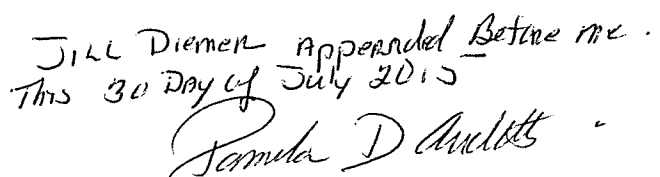 Jill Diemer Appearded Before me.
This 30 Day of July 2015
Pamela D